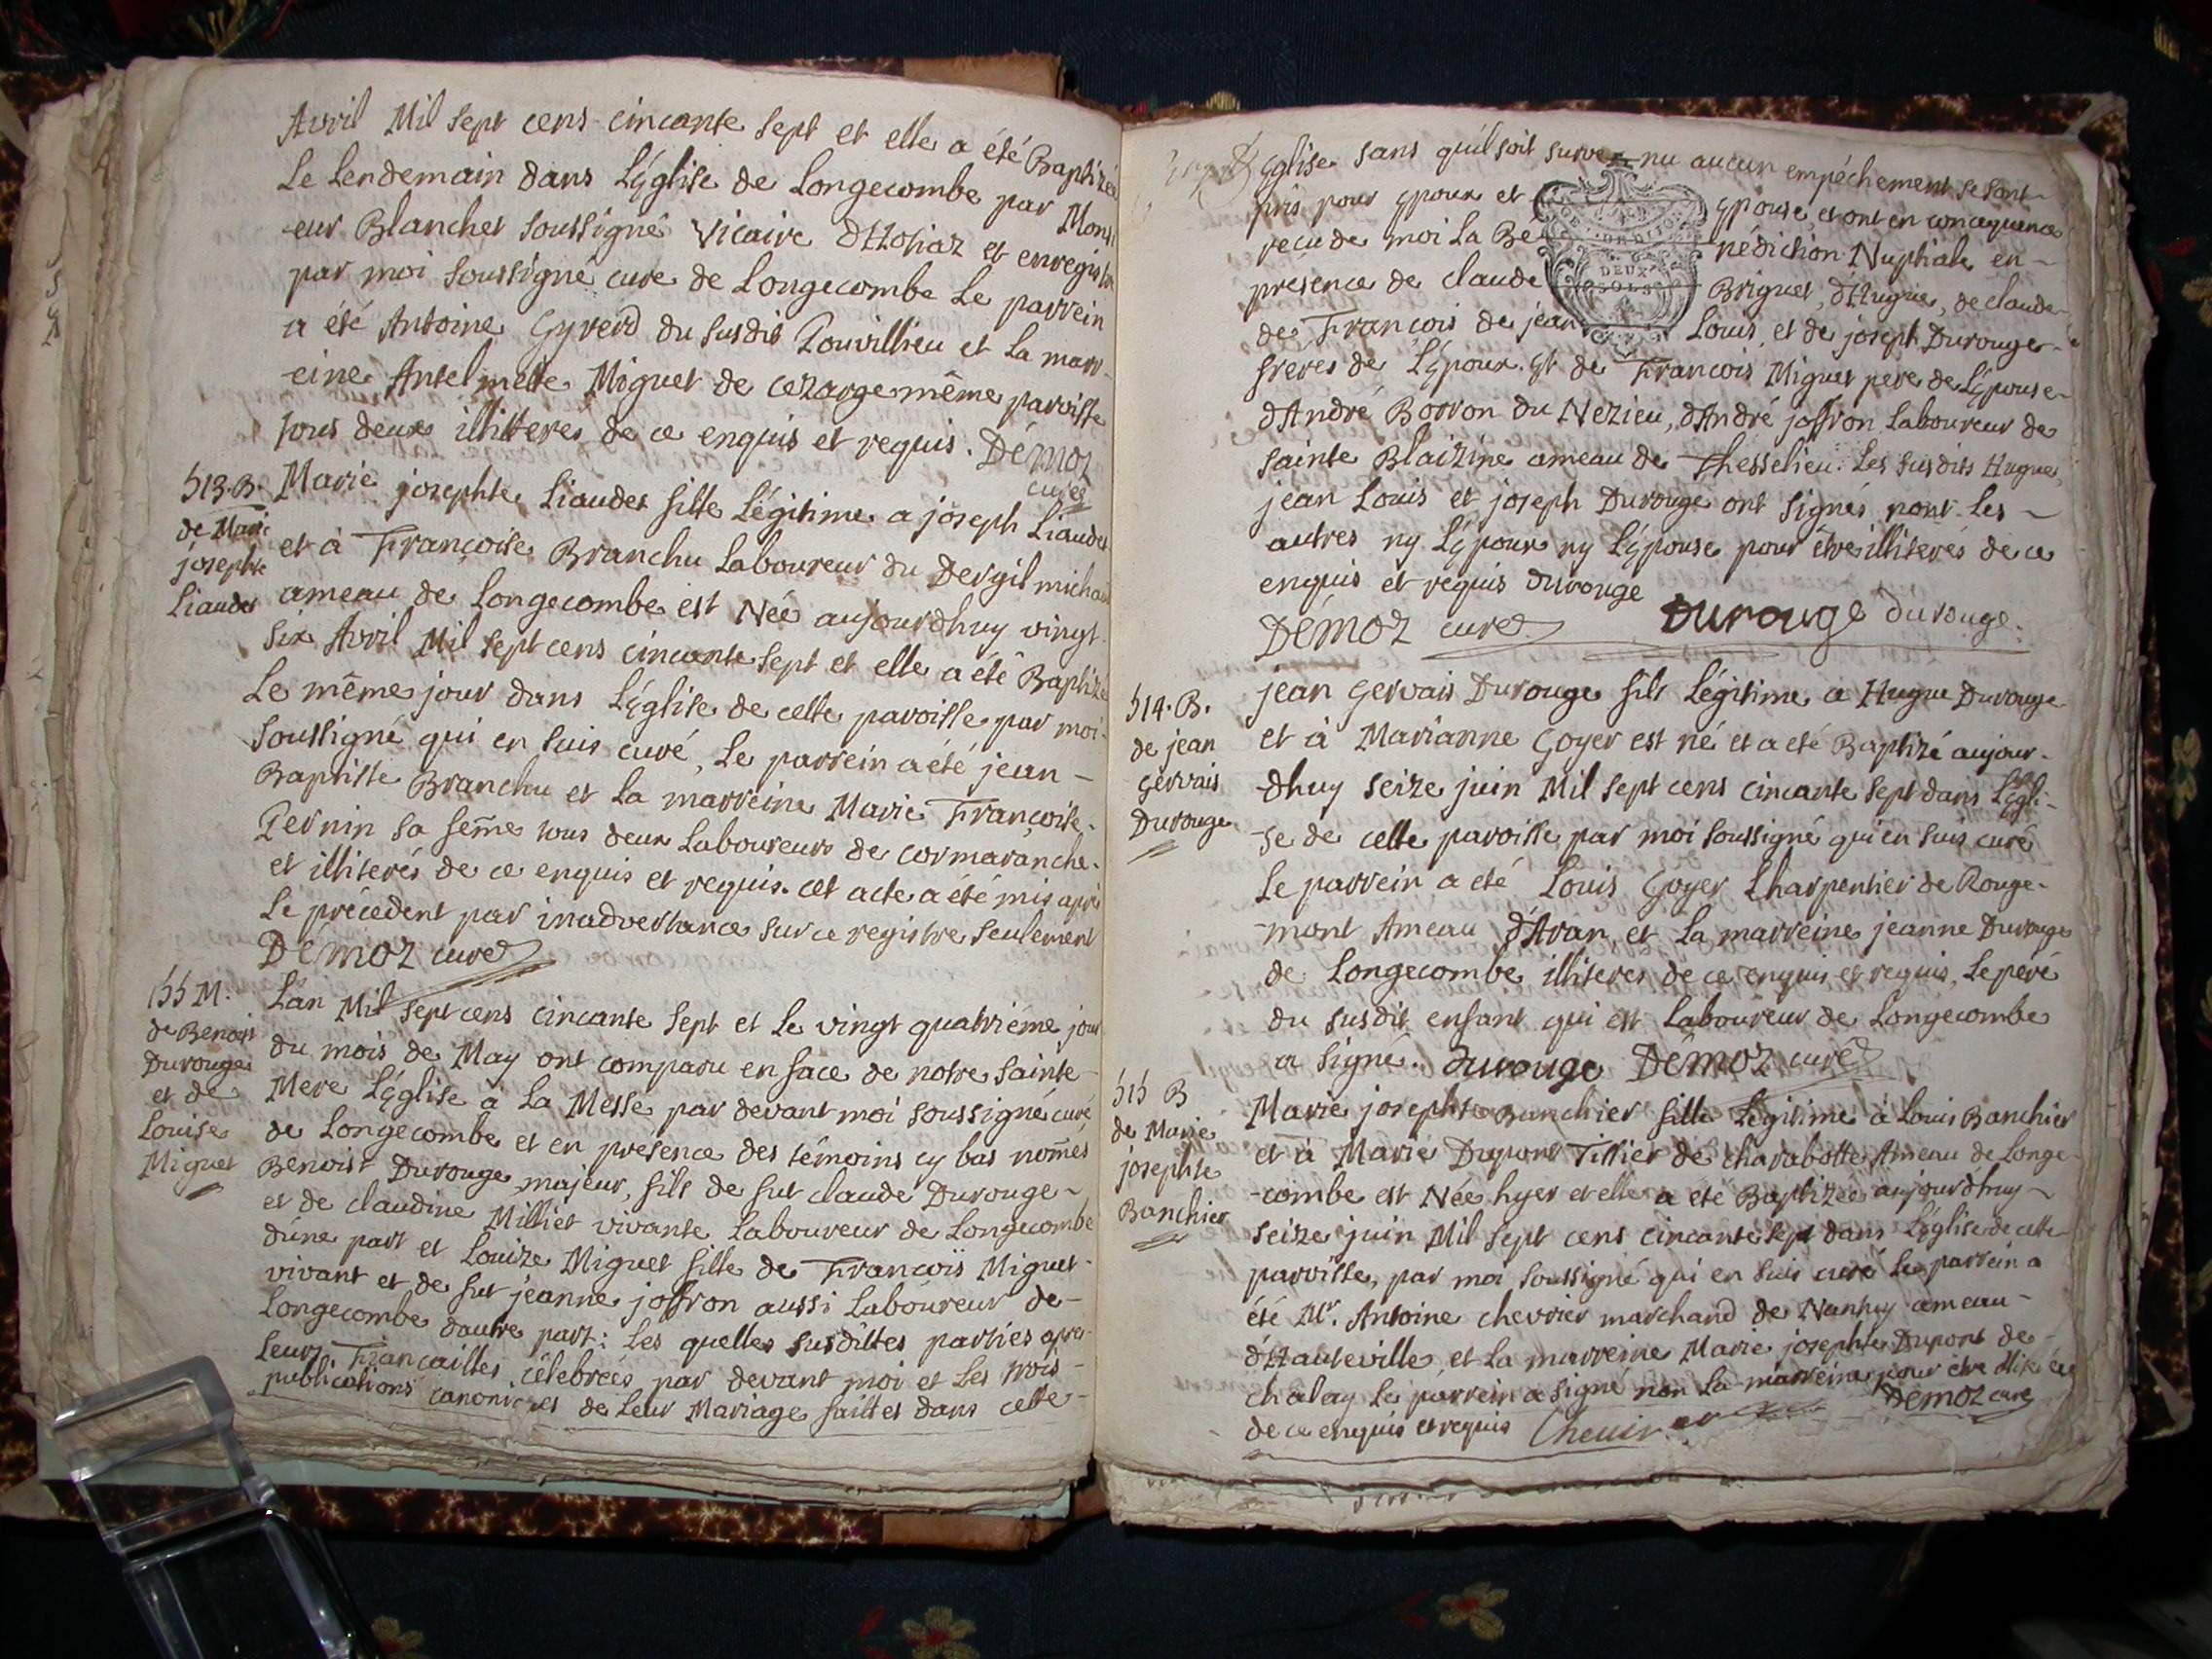 Avril Mil sept cens cincante sept et elle a été Baptizée
Le Lendemain dans L'Eglise de Longecombe par Monsi
-eur Blanchet soussigné Vicaire d'Hotiaz et enregistré
par moi soussigné curé de Longecombe Le parrein
a été Antoine Gyrerd du susdit Pouvillieu et La marr-
-eine Antelmette Miguet de cezarge même paroisse
tous deux illitteres de ce enquis et requis. Démoz
curé
513.B.
de Marie
josephte
Liaudet
Marie josephte Liaudet fille Légitime a joseph Liaudet
et à Françoise Branchu Laboureur du Dergil michaud
ameau de Longecombe est Née aujourdhuy vingt
six Avril Mil sept cens cincante sept et elle a été Baptizée
Le même jour dans L'Eglise de cette paroisse par moi
soussigné qui en suis curé, Le parrein a été jean -
Baptiste Branchu et La marreine Marie Françoise
Pernin sa feme tous deux Laboureurs de cormaranche
et illiterés de ce enquis et requis. cet acte a été mis après
Le précédent par inadvertance sur ce registre seulement
Démoz curé
155 M.
de Benoist
Durouge
et de
Louise
Miguet
L'an Mil sept cens cincante sept et Le vingt quatriéme jour
du mois de May ont comparu en face de notre sainte
Mere L'Eglise à La Messe par devant moi soussigné curé
de Longecombe et en présence des témoins cy bas només
Benoist Durouge majeur, fils de fut claude Durouge
et de claudine Milliet vivante Laboureur de Longecombe
d'une part et Louize Miguet fille de François Miguet
vivant et de fut jeanne joffron aussi Laboureur de
Longecombe d'autre part: Les quelles susdittes parties apres
Leurs Fiançailles célébrées par devant moi et Les trois
publications canoniques de Leur Mariage faittes dans cette
Eglise sans qu'il soit survenu aucun empéchement se sont
pris pour Epoux et Epouse et ont en concequence
recu de moi La Bénédiction Nuptiale en
DEUX
SOLS
présence de claude Briguet, d'Hugue, de claude
de François de jean Louis, et de joseph Durouge
freres de L'Epoux. Et de François Miguet pere de L'Epouse
d'André Borron du Nezieu, d'André joffron Laboureur de
sainte Blaizine ameau de Thesselieu. Les susdits Hugue,
jean Louis et joseph Durouge ont signés nont Les
autres ny L'Epoux ny L'Epouse pour étre illiterés de ce
enquis et requis durouge
Démoz curé Durouge durouge.
514.B.
de jean
gervais
Durouge
jean gervais Durouge fils Légitime a Hugue Durouge
et à Marianne Goyet est né et a eté Baptizé aujour-
-dhuy seize juin Mil sept cens cincante sept dans L'Egli-
-se de cette paroisse par moi soussigné qui en suis curé
Le parrein a eté Louis Goyet Charpentier de Rouge-
-mont Ameau d'Aran, et La marreine jeanne Durouge
de Longecombe illiteres de ce enquis et requis, Le péré
du susdit enfant qui est Laboureur de Longecombe
a signé. durouge Démoz curé
515 B
de Marie
josephte
Banchier
Marie josephte Banchier fille Légitime à Louis Banchier
et à Marie Dupont Tissier de charabotte Ameau de Longe-
-combe est Née hyer et elle a été Baptizée aujourdhuy
seize juin Mil sept cens cincante sept dans L'Eglise de cette
paroisse, par moi soussigné qui en suis curé Le parrein a
été Mr. Antoine chevrier marchand de Nantuy ameau
d'Hauteville et La marreine Marie josephte Dupont de
chaley Le parrein a signé non La marreine pour étre illiterée
de ce enquis et requis Chevrier Démoz curé